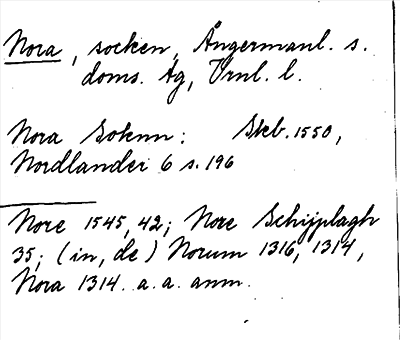 Nora, socken, Ångermanl. s.
doms. tg, Vrnl. l.
Nora Soknn: Skb. 1550,
Nordlander 6 s. 196
Nore 1545, 42; Nore Schijplagh
35; (in, de) Norum 1316, 1314,
Nora 1314. a. a. anm.